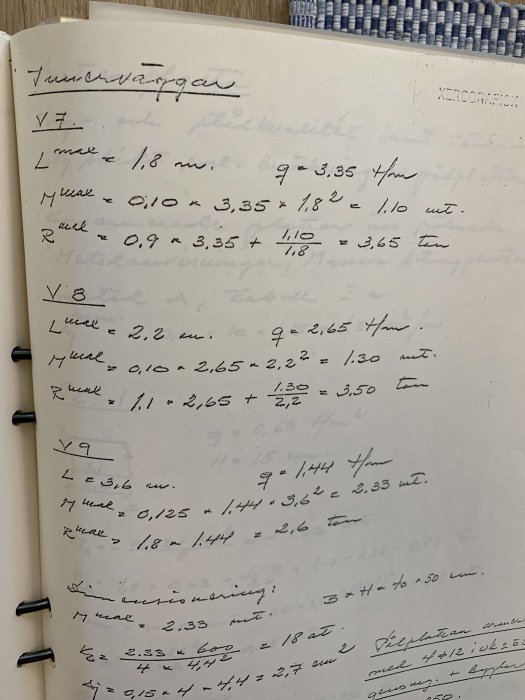 XEROGRAFISK
Innerväggar
V7.
Lmax = 1,8 m. q = 3,35 t/m
Mmax = 0,10 × 3,35 × 1,8² = 1,10 mt.
Rmax = 0,9 × 3,35 + 1,10/1,8 = 3,65 ton
V8
Lmax = 2,2 m. q = 2,65 t/m.
Mmax = 0,10 × 2,65 × 2,2² = 1,30 mt.
Rmax = 1,1 × 2,65 + 1,30/2,2 = 3,50 ton
V9
L = 3,6 m. q = 1,44 t/m
Mmax = 0,125 × 1,44 × 3,6² = 2,33 mt.
Rmax = 1,8 × 1,44 = 2,6 ton
Dimensionering:
Mmax = 2,33 mt. B × H = 40 × 50 cm.
= 2,33 × 600 / 4 × 4,4² = 18 at.
Aj = 0,15 × 4 × 4,4 = 2,7 cm²
Pålplattan
med 4 φ 12